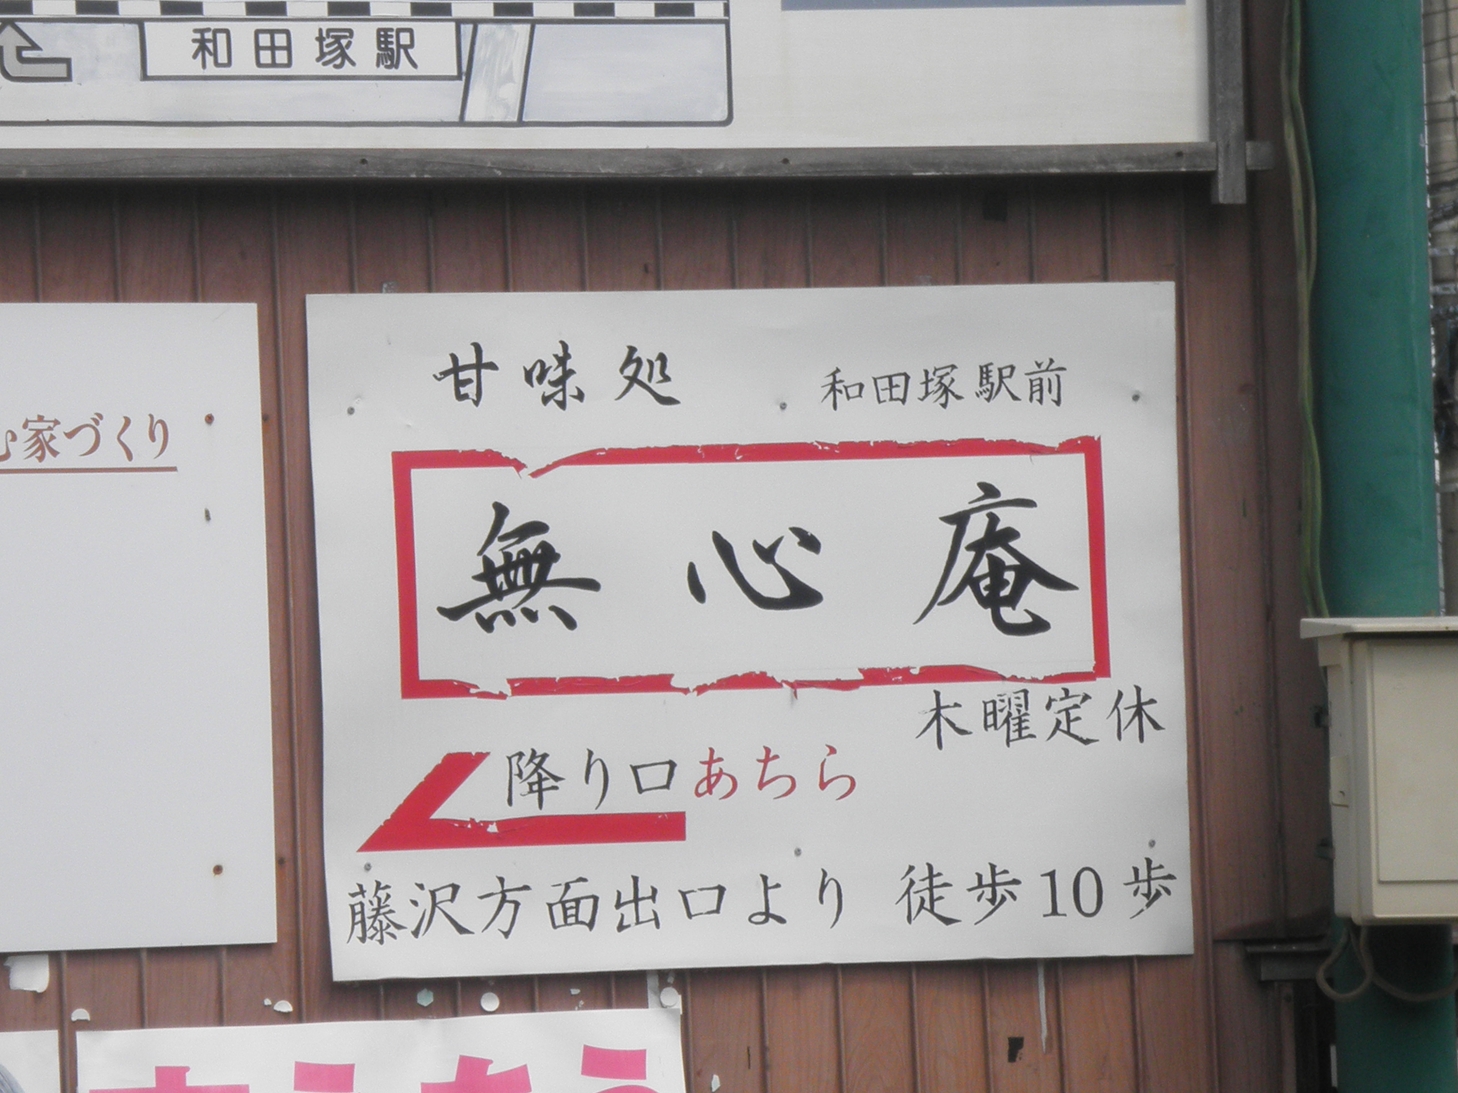 和田塚駅
甘味処 和田塚駅前
無心庵
木曜定休
降り口あちら
藤沢方面出口より 徒歩10歩
家づくり